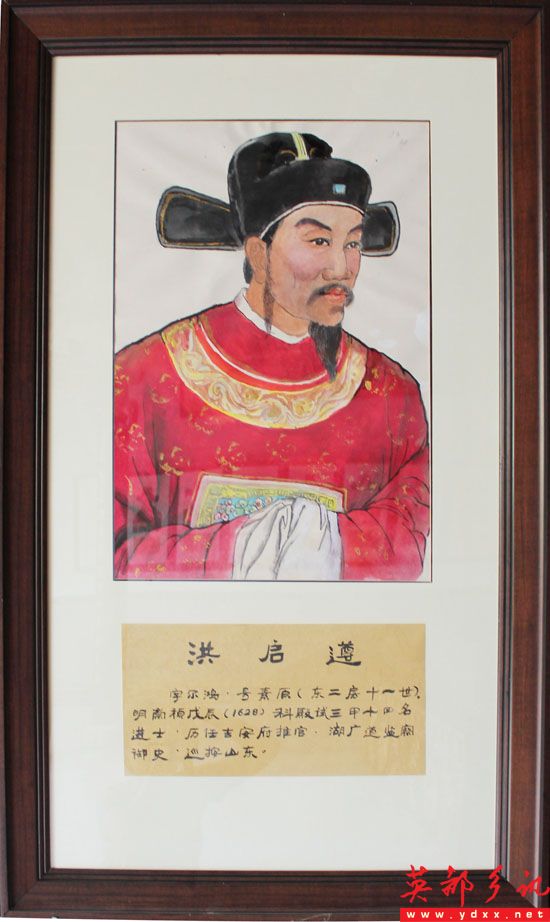 洪启遵
字尔鸿，号素原（东二房十一世）。
明崇祯戊辰（1628）科殿试三甲十四名
进士，历任吉安府推官，湖广道监察
御史，巡按山东。
英都乡讯
www.ydxx.net